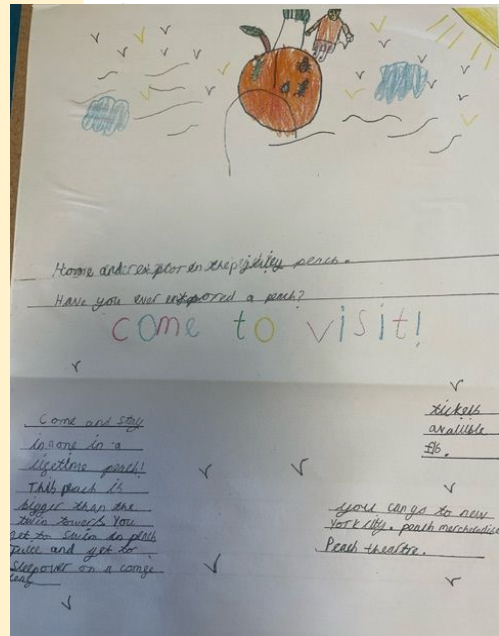 Home and explor en the juicy peach.
Have you ever explored a peach?
come to visit!
Come and stay
in a one in a
ligetime peach!
This peach is
bigger than the
twin towers You
get to swim in peach
juice and get to
Sleepover on a comge
leaf
tickets
avalible
£16.
you can go to new
York city. peach merchandise
Peach theatre.